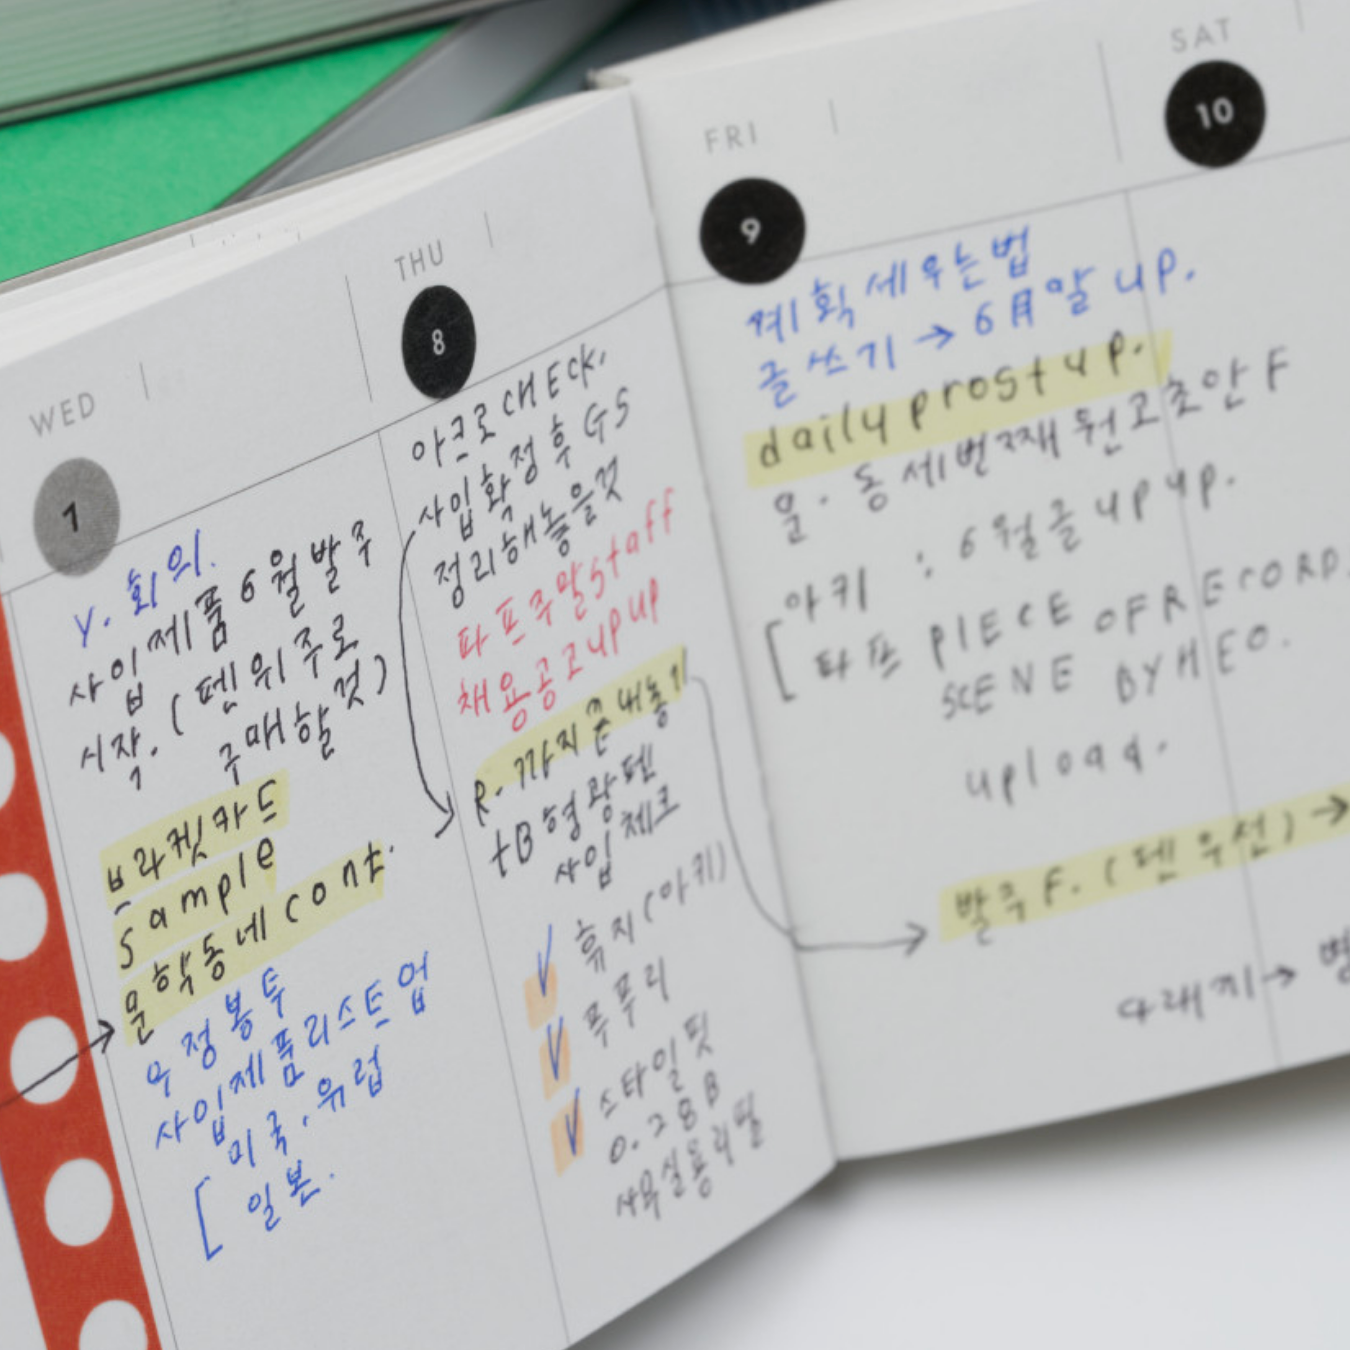 WED
7
Y. 회의.
사입제품 6월발주
시작. (펜위주로
구매할것)
브라켓카드
sample
문학동네 cont.
우정봉투
사입제품리스트업
[ 미국, 유럽
일본.
THU
8
아크로 CHECK.
사입확정후 GS
정리해놓을것
타프주말 staff
채용공고 upup
R. 까지준내놓기
tB형광펜
사입체크
휴지(아키)
푸푸리
스타일핏
0.28 B
사무실용리필
FRI
9
계획세우는법
글쓰기 → 6月말 up.
daily prost up.
문.동 세번째 원고초안 F
[ 아키 : 6월글 up up.
타프 PIECE OF RECORD.
SCENE BY HEO.
upload.
발주 F. (펜우선) →
다래끼 →
SAT
10